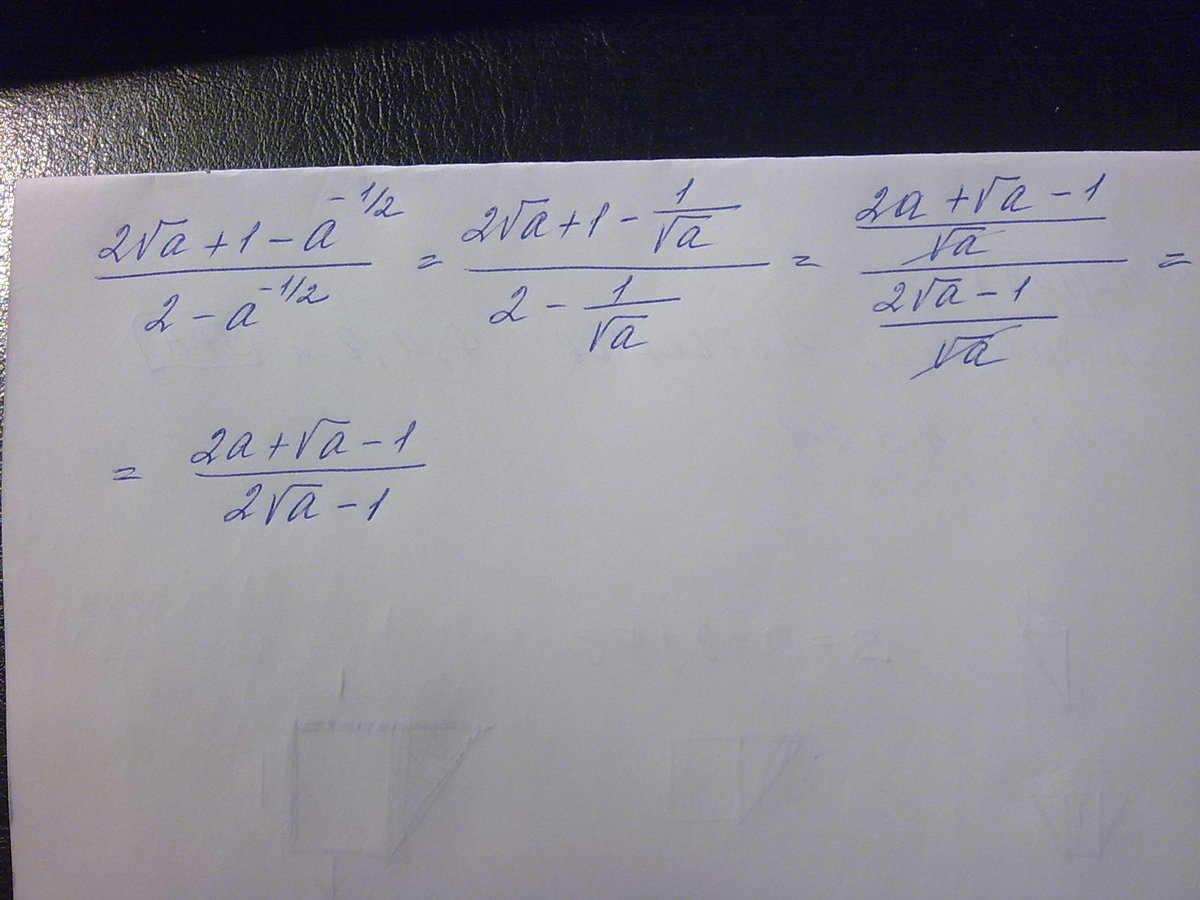 (2√a + 1 - a^(-1/2))/(2 - a^(-1/2)) = (2√a + 1 - 1/√a)/(2 - 1/√a) = ((2a + √a - 1)/√a)/((2√a - 1)/√a) =
= (2a + √a - 1)/(2√a - 1)